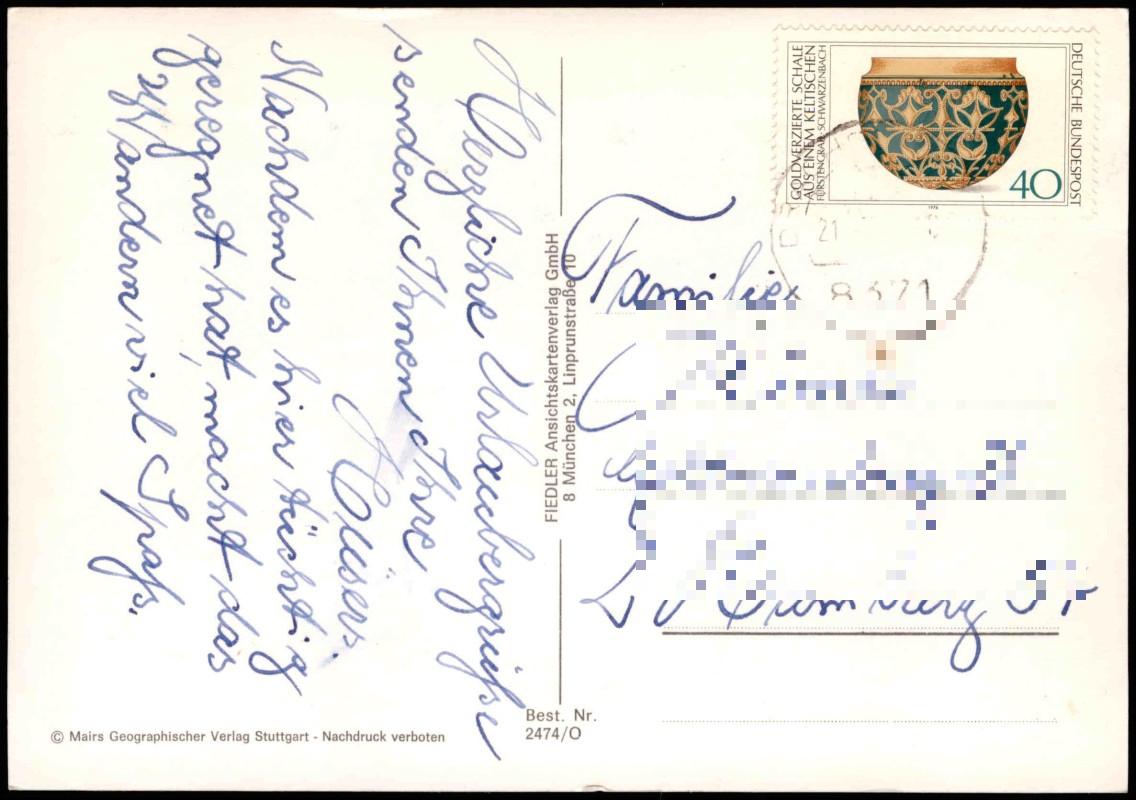 Herzliche Urlaubergrüße
senden Ihnen Ihre
Nachdem es hier tüchtig
geregnet hat, macht das
Wandern viel Spaß.
FIEDLER Ansichtskartenverlag GmbH
8 München 2, Linprunstraße 10
Best. Nr.
2474/O
© Mairs Geographischer Verlag Stuttgart - Nachdruck verboten
GOLDVERZIERTE SCHALE
AUS EINEM KELTISCHEN
FÜRSTENGRAB · SCHWARZENBACH
DEUTSCHE BUNDESPOST
40
1976
21
Familie